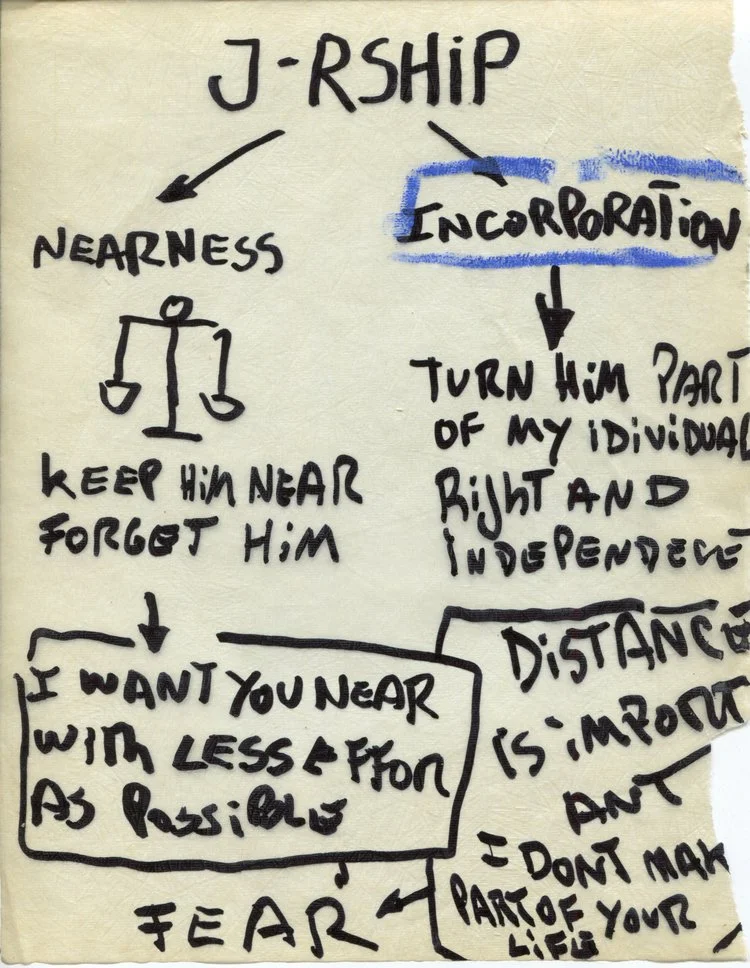 J-RSHiP
NEARNESS
INCORPORATION
KEEP HiM NEAR
FORGET HiM
TURN HiM PART
OF MY iDiViDUAL
RighT AND
iNDEPENDECE
I WANT YOU NEAR
WITh LESS EFFOR
AS POSSiBLE
DiSTANCE
iS iMPORT
ANT
I DONT MAK
PART OF YOUR
LiFE
FEAR